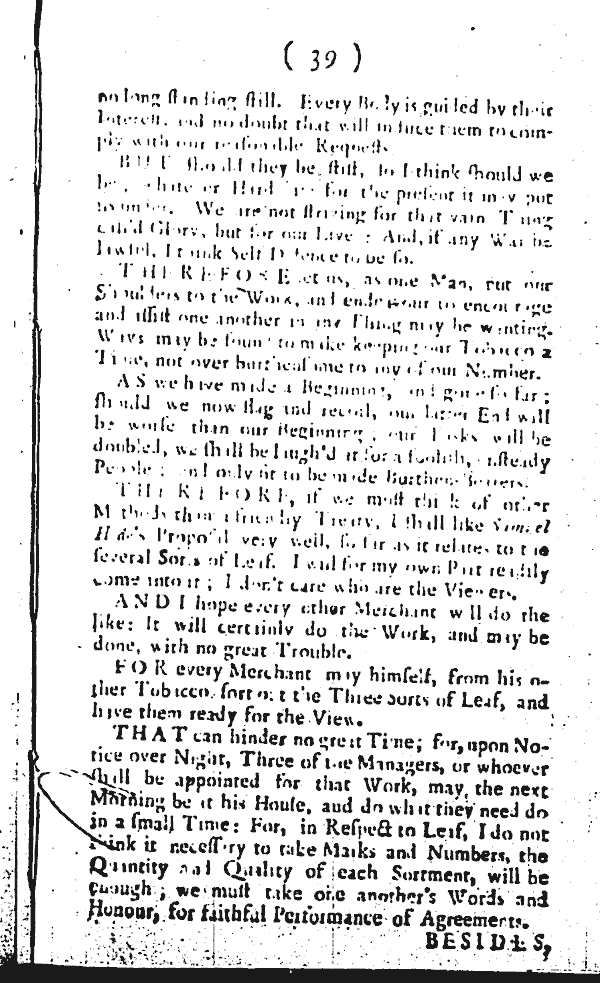 ( 39 )
no long ſtanding ſtill. Every Body is guided by their
Intereſt, and no doubt that will induce them to com-
ply with our reaſonable Requeſts.
BUT ſhould they be ſtiff, ſo I think ſhould we
be, whatever Hardſhips for the preſent it may put
us under. We are not ſtriving for that vain Thing
call'd Glory, but for our Lives: And, if any War be
lawful, I think Self Defence to be ſo.
THEREFORE let us, as one Man, put our
Shoulders to the Work, and endeavour to encourage
and aſſiſt one another in any Thing may be wanting.
Ways may be found to make keeping our Tobacco a
Time, not over burthenſome to any of our Number.
AS we have made a Beginning, and gone ſo far;
ſhould we now flag and recoil, our latter End will
be worſe than our Beginning; our Tasks will be
doubled, we ſhall be laugh'd at for a fooliſh, unſteady
People; and only fit to be made Burthen-Bearers.
THEREFORE, if we muſt think of other
Methods than friendly Treaty, I ſhall like Samuel
Propoſal very well, ſo far as it relates to the
ſeveral Sorts of Leaf. I will for my own Part readily
come into it; I don't care who are the Viewers.
AND I hope every other Merchant will do the
like: It will certainly do the Work, and may be
done, with no great Trouble.
FOR every Merchant may himſelf, from his o-
ther Tobacco, ſort out the Three Sorts of Leaf, and
have them ready for the View.
THAT can hinder no great Time; for, upon No-
tice over Night, Three of the Managers, or whoever
ſhall be appointed for that Work, may, the next
Morning be at his Houſe, aud do what they need do
in a ſmall Time: For, in Reſpect to Leaf, I do not
think it neceſſary to take Marks and Numbers, the
Quantity and Quality of each Sortment, will be
enough; we muſt take one another's Words and
Honour, for faithful Performance of Agreements.
BESIDES,